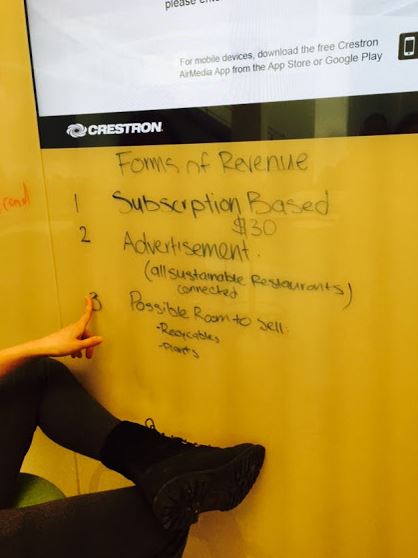 please ente
For mobile devices, download the free Crestron
AirMedia App from the App Store or Google Play
CRESTRON
Forms of Revenue
1 Subscrption Based
$30
2 Advertisement.
(all sustainable Restaurants)
connected
3 Possible Room to sell:
-Recycables
-Plants